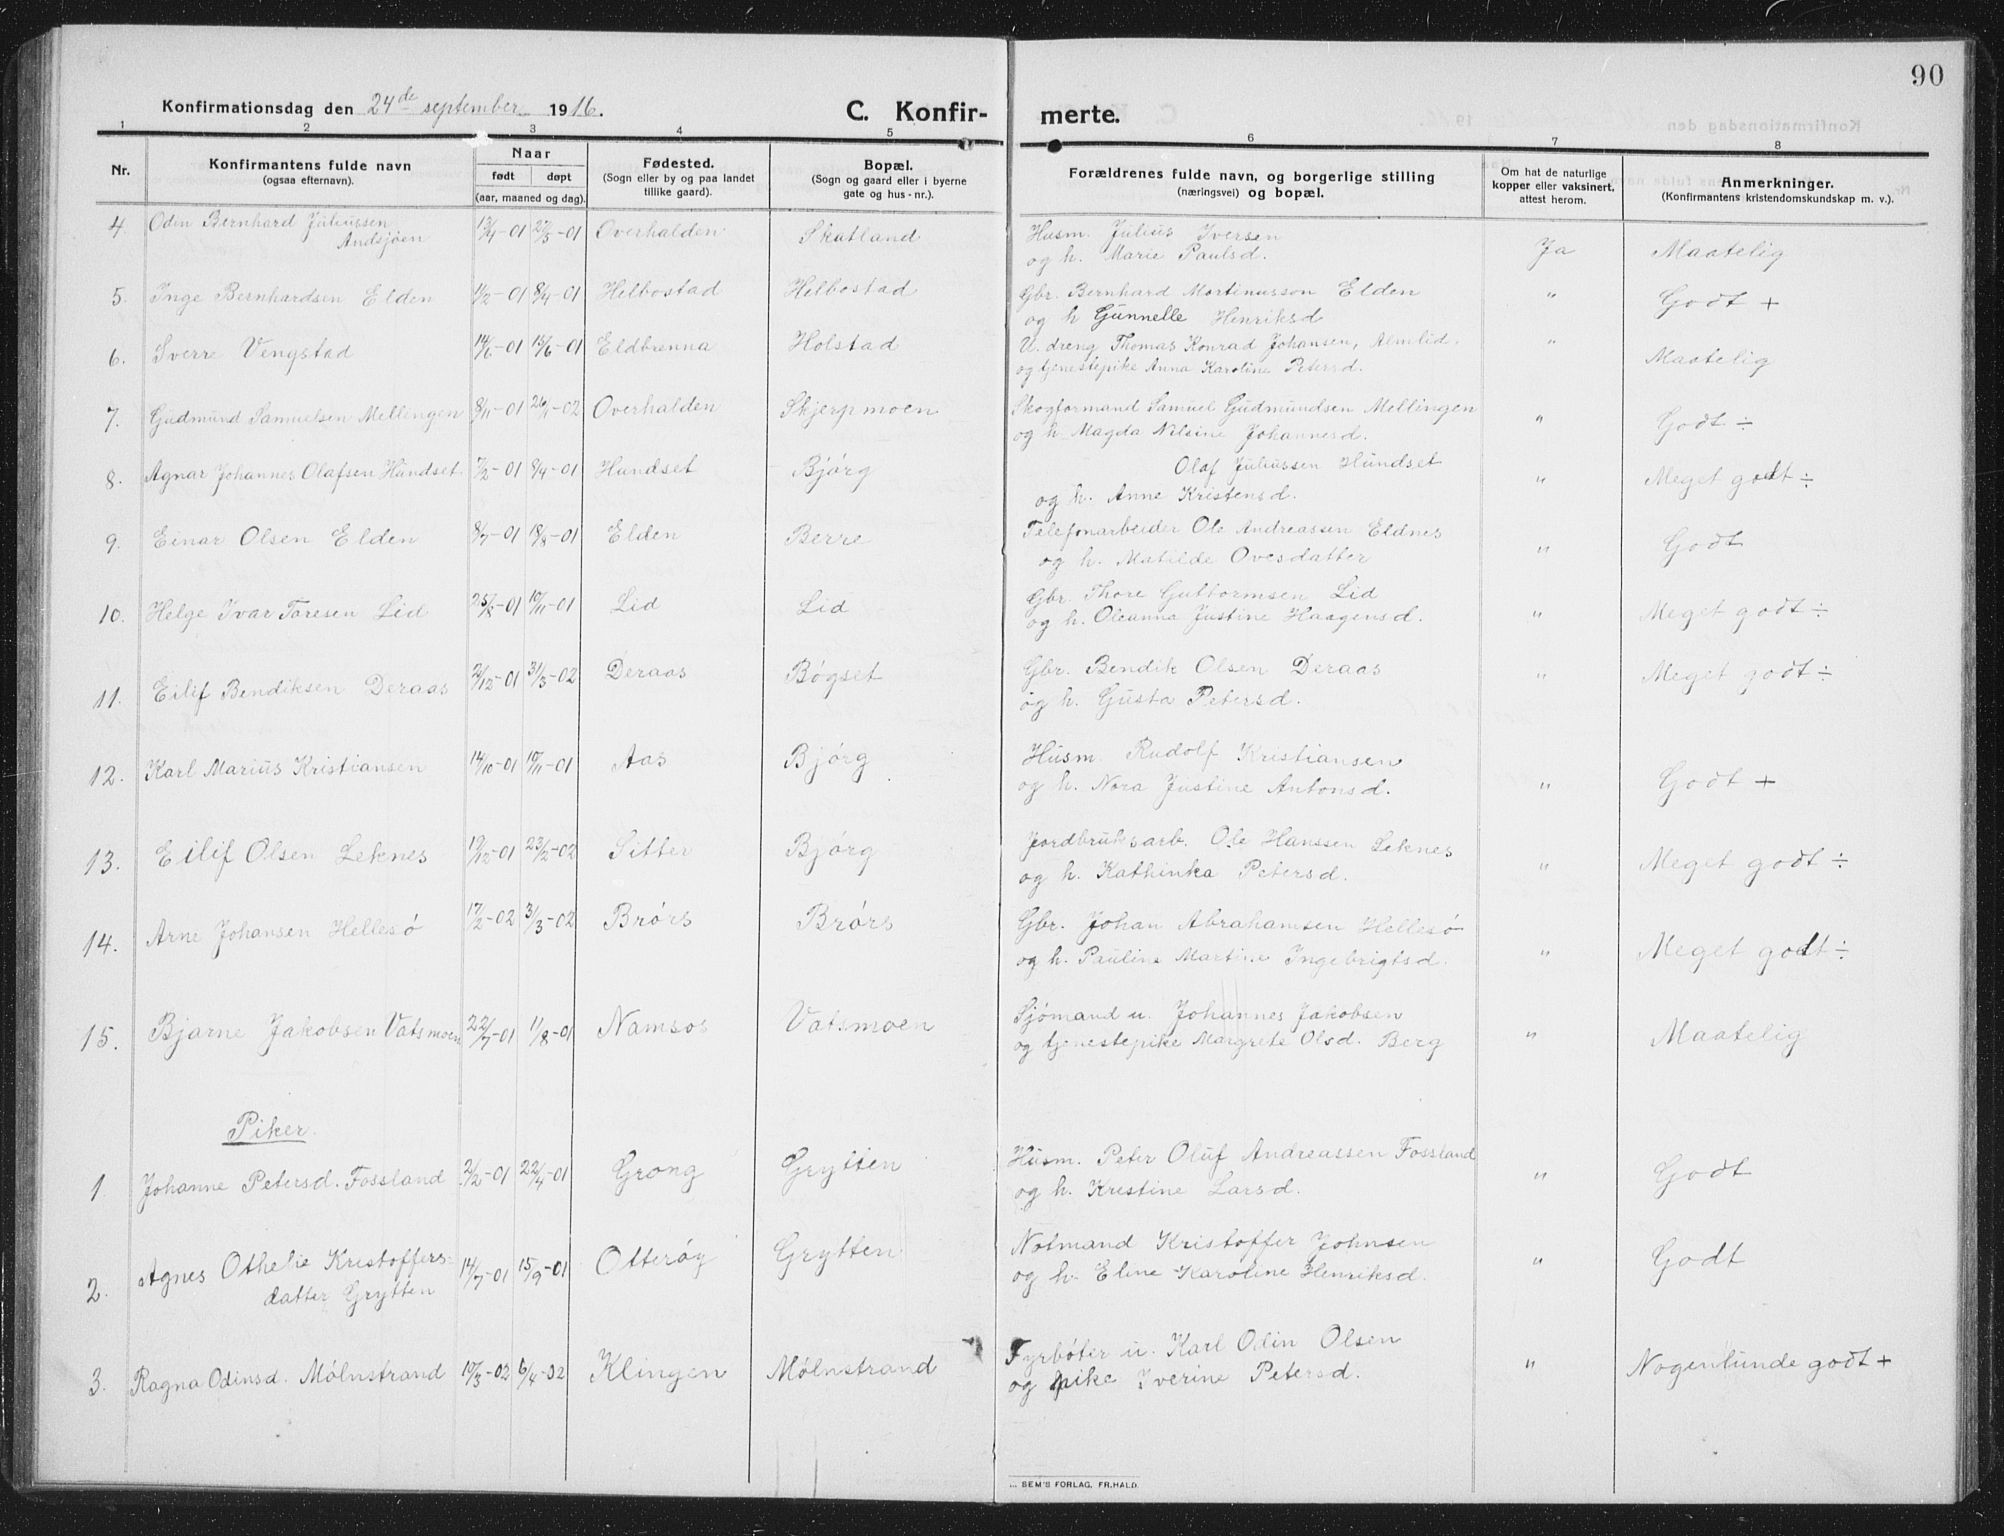 90
Konfirmationsdag den 24de september 1916. C. Konfir- merte.
1 2 3 4 5 6 7 8
Nr. Konfirmantens fulde navn (ogsaa efternavn). Naar født døpt (aar, maaned og dag). Fødested. (Sogn eller by og paa landet tillike gaard). Bopæl. (Sogn og gaard eller i byerne gate og hus-nr.). Forældrenes fulde navn, og borgerlige stilling (næringsvei) og bopæl. Om hat de naturlige kopper eller vaksinert, attest herom. Anmerkninger. (Konfirmantens kristendomskundskap m. v.).
4. Oden Bernhard Juliussen 13/4-01 27/5-01 Overhalden Skatland Husm. Julius Iversen Ja Maatelig
Andsjøen og h. Marie Paulsd.
5. Inge Bernhardsen Elden 1/2-01 8/4-01 Helbostad Helbostad Gbr. Bernhard Martinusson Elden " Godt +
og h Gunnelle Henriksd
6. Sverre Vengstad 14/6-01 15/6-01 Eldbrenna Holstad U. dreng Thomas Konrad Johansen, Almlid, " Maatelig
og tjenestepike Anna Karoline Petersd.
7. Gudmund Samuelsen Mellengen 8/11-01 26/1-02 Overhalden Skjerpmoen Skogformand Samuel Gudmundsen Mellingen " Godt ÷
og h. Magda Nilsine Johannesd.
8. Agnar Johannes Olafsen Hundset 7/2-01 8/4-01 Hundset Bjørg Olaf Juliussen Hundset " Meget godt ÷
og h. Anne Kristensd.
9. Einar Olsen Elden 8/7-01 18/8-01 Elden Berre Telefonarbeider Ole Andreassen Eldnes " Godt
og h. Matilde Ovesdatter
10. Helge Ivar Toresen Lid 25/8-01 10/11-01 Lid Lid Gbr. Thore Guttormsen Lid " Meget godt ÷
og h. Oleanna Justine Haagensd.
11. Eilif Bendiksen Deraas 2/12-01 31/3-02 Deraas Bøgset Gbr. Bendik Olsen Deraas " Meget godt ÷
og h. Gusta Petersd.
12. Karl Marius Kristiansen 14/10-01 10/11-01 Aas Bjørg Husm. Rudolf Kristiansen " Godt +
og h. Nora Justine Antonsd.
13. Eilif Olsen Leknes 19/12-01 23/2-02 Sitter Bjørg Jordbruksarb. Ole Hanssen Leknes " Meget godt ÷
og h. Kathinka Petersd.
14. Arne Johansen Hellesø 17/2-02 31/3-02 Brørs Brørs Gbr. Johan Abrahamsen Hellesø " Meget godt ÷
og h. Pauline Martine Ingebrigtsd.
15. Bjarne Jakobsen Vatsmoen 22/7-01 1/8-01 Namsos Vatsmoen Sjømand u. Johannes Jakobsen " Maatelig
og tjenestepike Margrete Olsd. Berg
Piker.
1 Johanne Petersd. Fossland 2/2-01 22/4-01 Grong Grytten Husm. Peter Oluf Andreassen Fossland " Godt
og h. Kristine Larsd.
2. Agnes Othelie Kristoffers- 14/7-01 15/9-01 Otterøy Grytten Notmand Kristoffer Johnsen " Godt
datter Grytten og h. Eline Karoline Henriksd.
3. Ragna Odinsd. Mølnstrand 10/3-02 6/4-02 Klingen Mølnstrand Fyrbøter u. Karl Odin Olsen " Nogenlunde godt +
og pike Iverine Petersd.
SEM'S FORLAG, FR.HALD